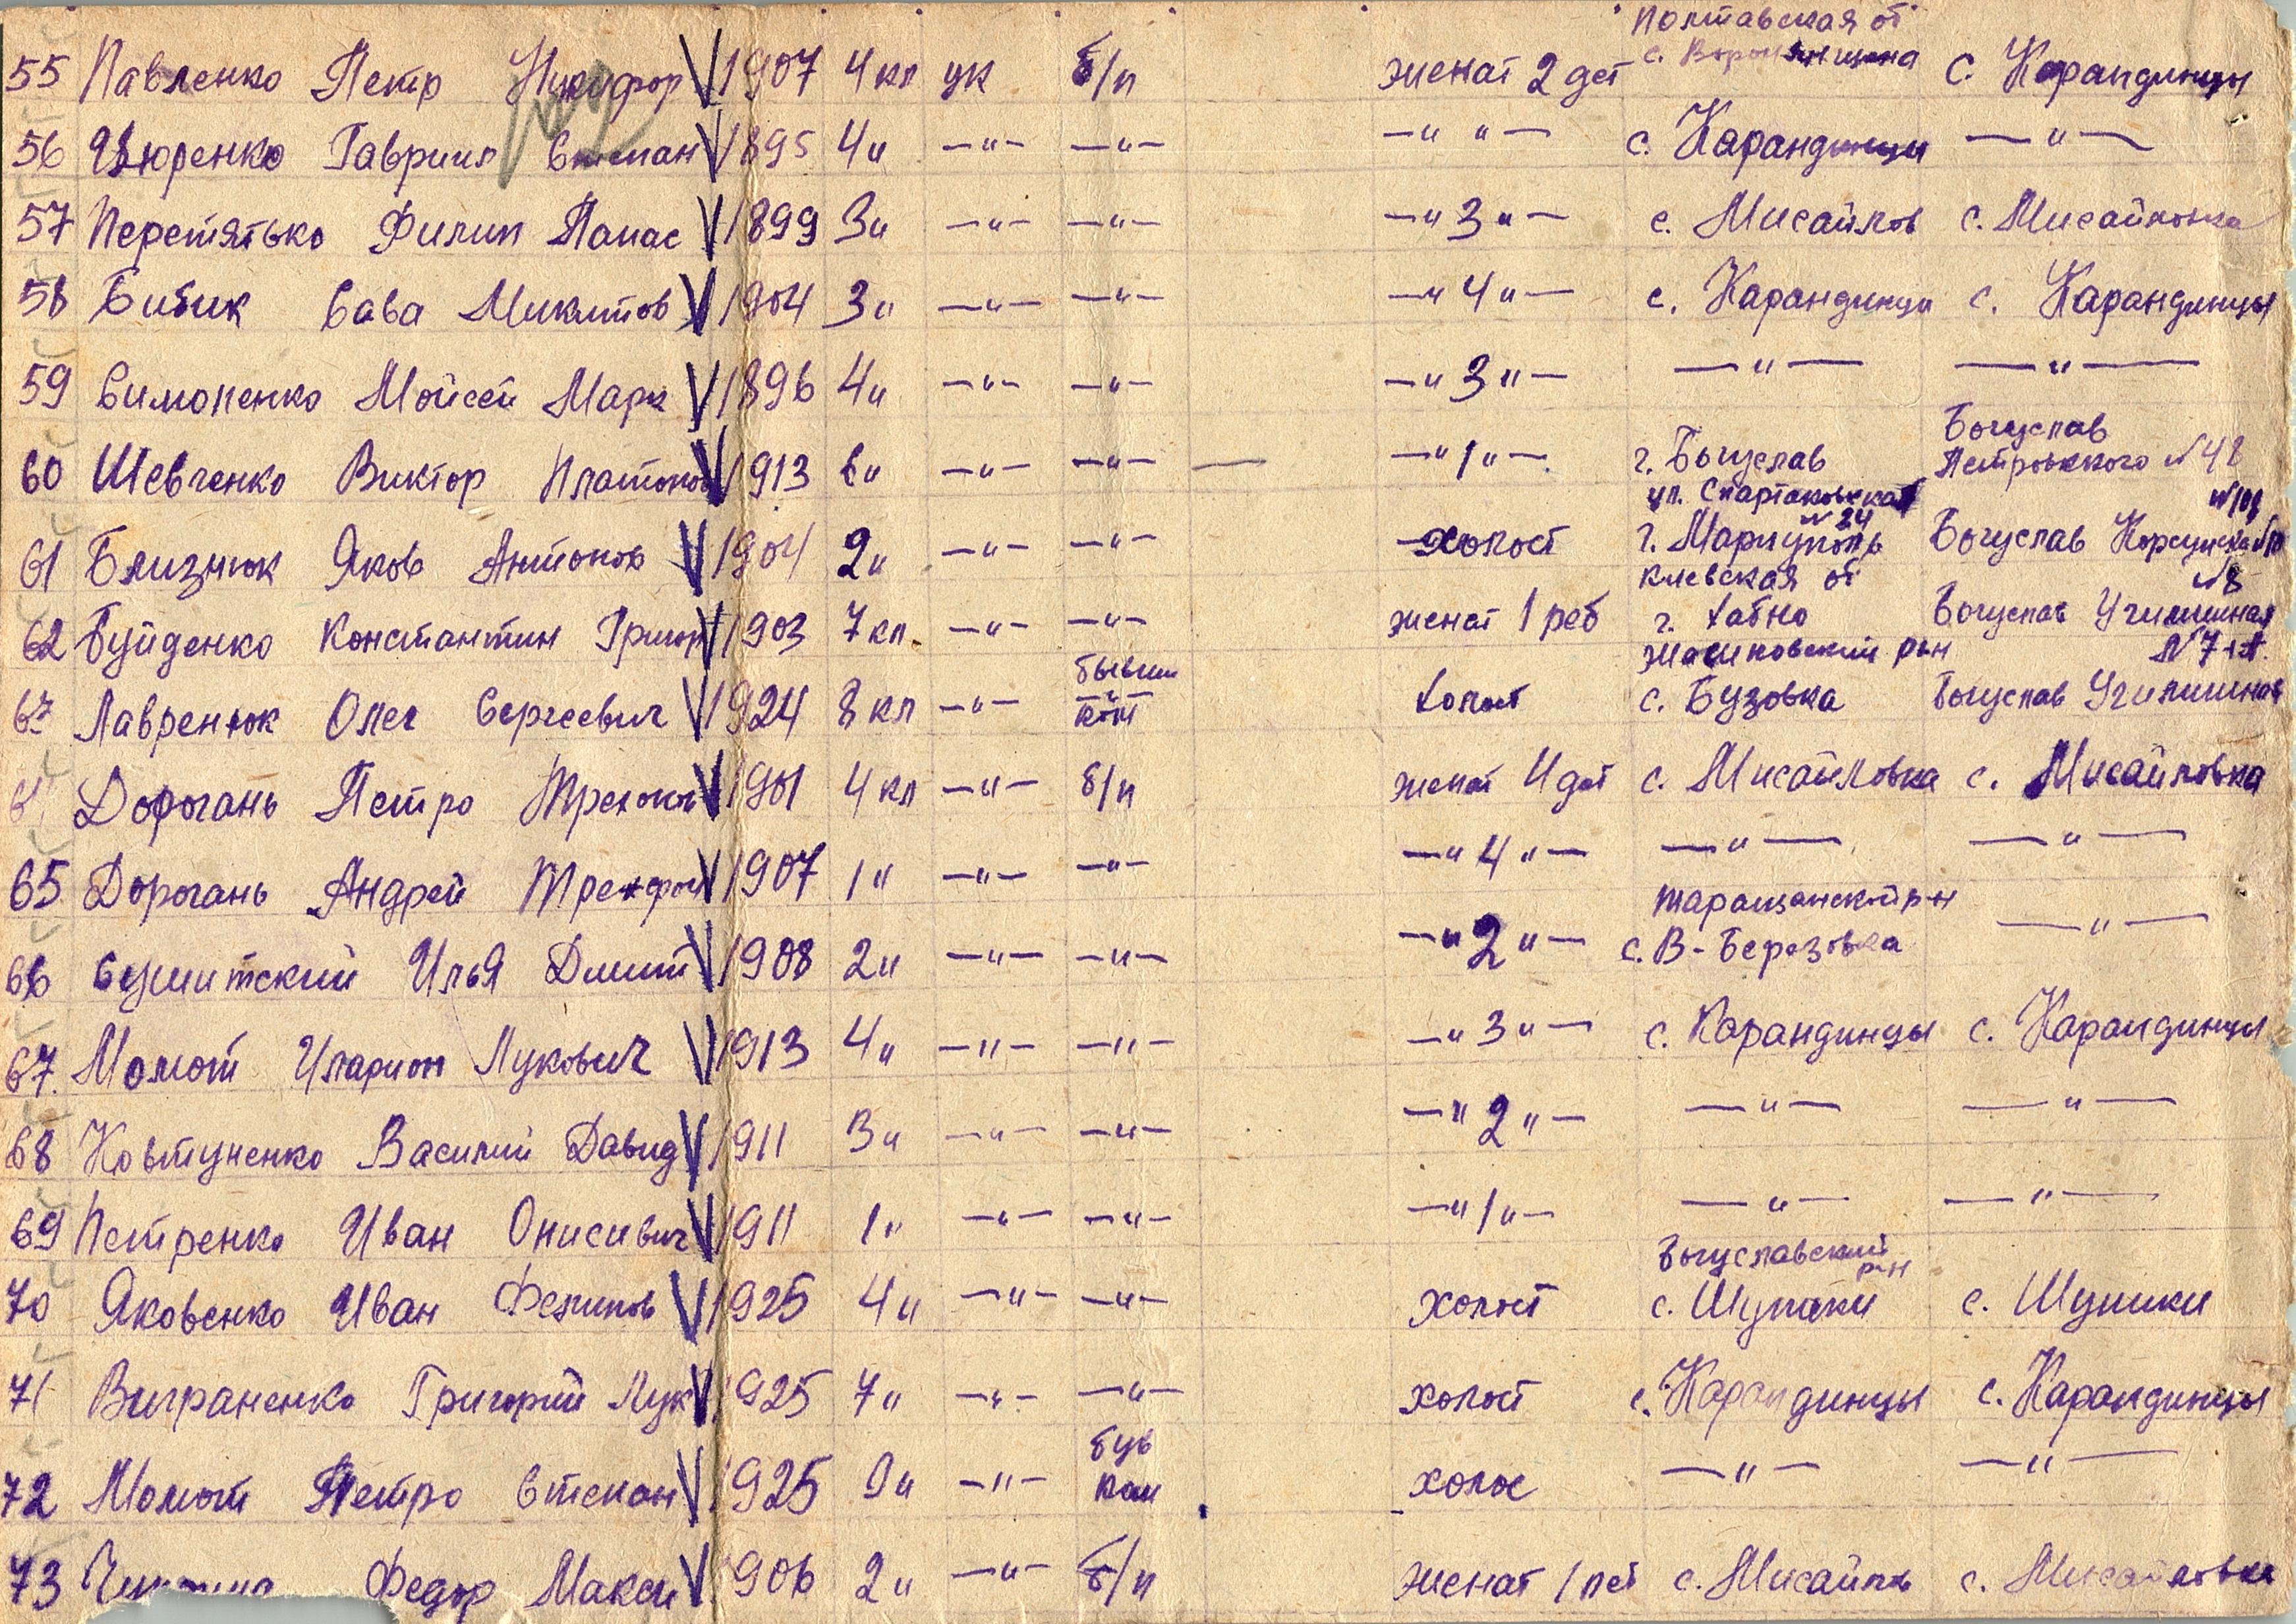 Полтавская об
55 Павленко Петр Никифор V 1907 4 кл ук б/п женат 2 дет с. С. Карандинцы
56 Цюренко Гавриил Степан V 1895 4" —"— —"— —" "— с. Карандинцы —"—
57 Перетятько Филип Панас V 1899 3" —"— —"— —"3"— с. Мисайлов с. Мисайловка
58 Бибик Сава Микитов V 1904 3" —"— —"— —"4"— с. Карандинци с. Карандинцы
59 Симоненко Мойсей Марк V 1896 4" —"— —"— —"3"— —"— —"—
Богуслав
60 Шевченко Виктор Платонов V 1913 6" —"— —"— — —"1"— г. Богуслав Петровского №48
ул. Спартаковская №101
№24
61 Близнюк Яков Антонов V 1904 2" —"— —"— холост г. Мариуполь Богуслав
Киевская об №8
62 Буйденко Константин Григор V 1903 7 кл. —"— —"— женат 1 реб г. Хабно Богуслав Училишная
бывши Жашковский рн №7
63 Лавренюк Олег Сергеевич V 1924 8 кл —"— —"— холост с. Бузовка Богуслав Училишная
ком
64 Дорогань Петро V 1901 4 кл —"— б/п женат 4 дет с. Мисайловка с. Мисайловка
65 Дорогань Андрей V 1907 1" —"— —"— —"4"— —"— —"—
Таращанский р-н
66 Сушитский Илья Дмит V 1908 2" —"— —"— —"2"— с. В-Березовка —"—
67. Момот Иларион Лукович V 1913 4" —"— —"— —"3"— с. Карандинцы с. Карандинцы
68 Ковтуненко Василий Давид V 1911 3" —"— —"— —"2"— —"— —"—
69 Петренко Иван Онисивич V 1911 1" —"— —"— —"1"— —"— —"—
Богуславский р-н
70 Яковенко Иван V 1925 4" —"— —"— холост с. Шупики с. Шупики
71 Виграненко Григорий Лук V 1925 7" —"— —"— холост с. Карандинцы с. Карандинцы
був
72 Момот Петро Степан V 1925 9" —"— ком холос —"— —"—
73 Федор Макси V 1906 2" —"— б/п женат 1 с. Мисайлов с. Мисайловка